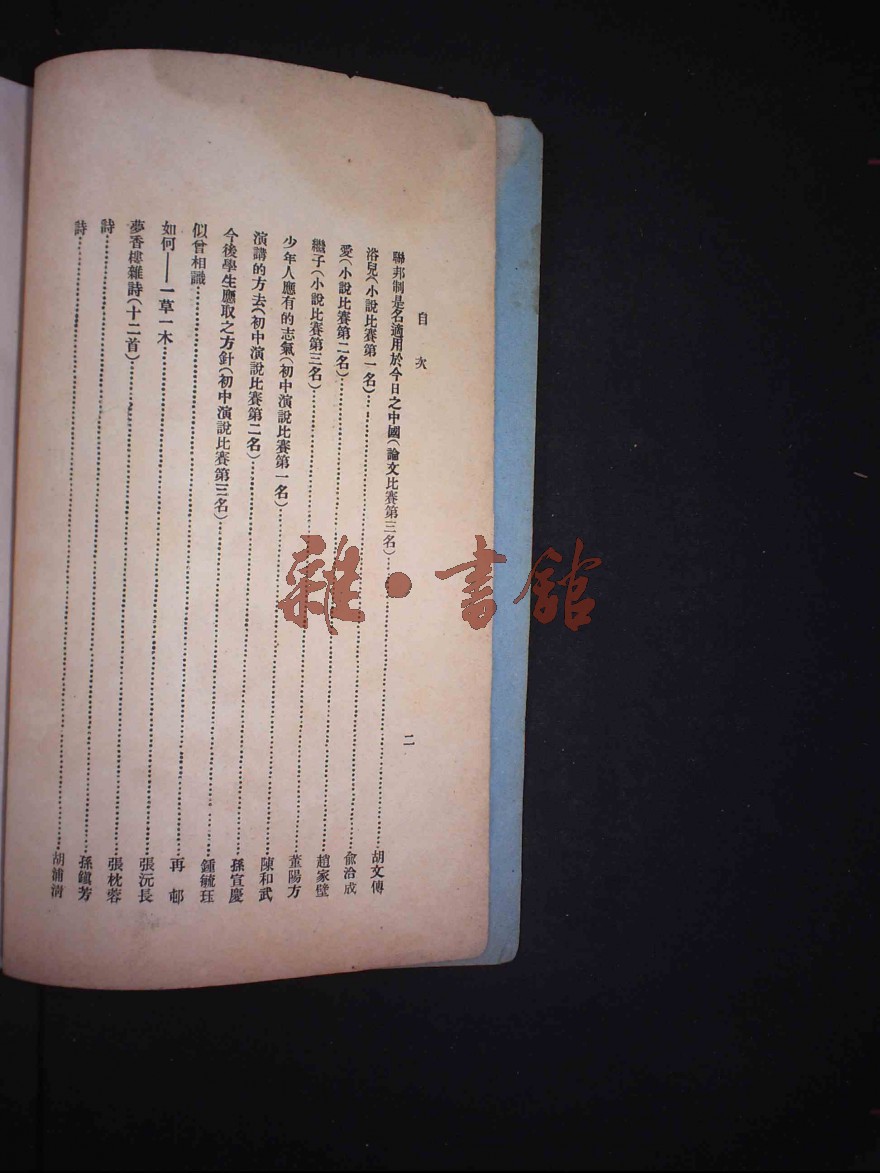 目次
二
聯邦制是名適用於今日之中國(論文比賽第三名)……胡文傅
浴兒(小說比賽第一名)……俞治成
愛(小說比賽第二名)……趙家璧
繼子(小說比賽第三名)……董陽方
少年人應有的志氣(初中演說比賽第一名)……陳和武
演講的方去(初中演說比賽第二名)……孫宣慶
今後學生應取之方針(初中演說比賽第三名)……鍾毓珏
似曾相識……再邨
如何——一草一木……張沅長
夢香樓雜詩(十二首)……張枕蓉
詩……孫鎭芳
詩……胡浦淸
雜·書館